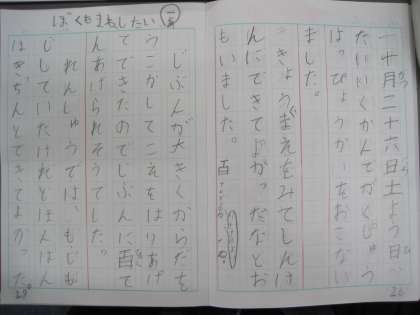 一十月二十六日土よう日、
たいいくかんでがくしゅう
はっぴょうかいをおこない
ました。
まえをみてしんけ
んにできてよかったなとお
もいました。百
ぼくもまねしたい
じぶんが大きくからだを
うごかしてこえをはりあげ
てできたのでじぶんに百て
んあげられそうでした。
れんしゅうでは、もじも
じしていたけれどほんばん
はきちんとできてよかった。